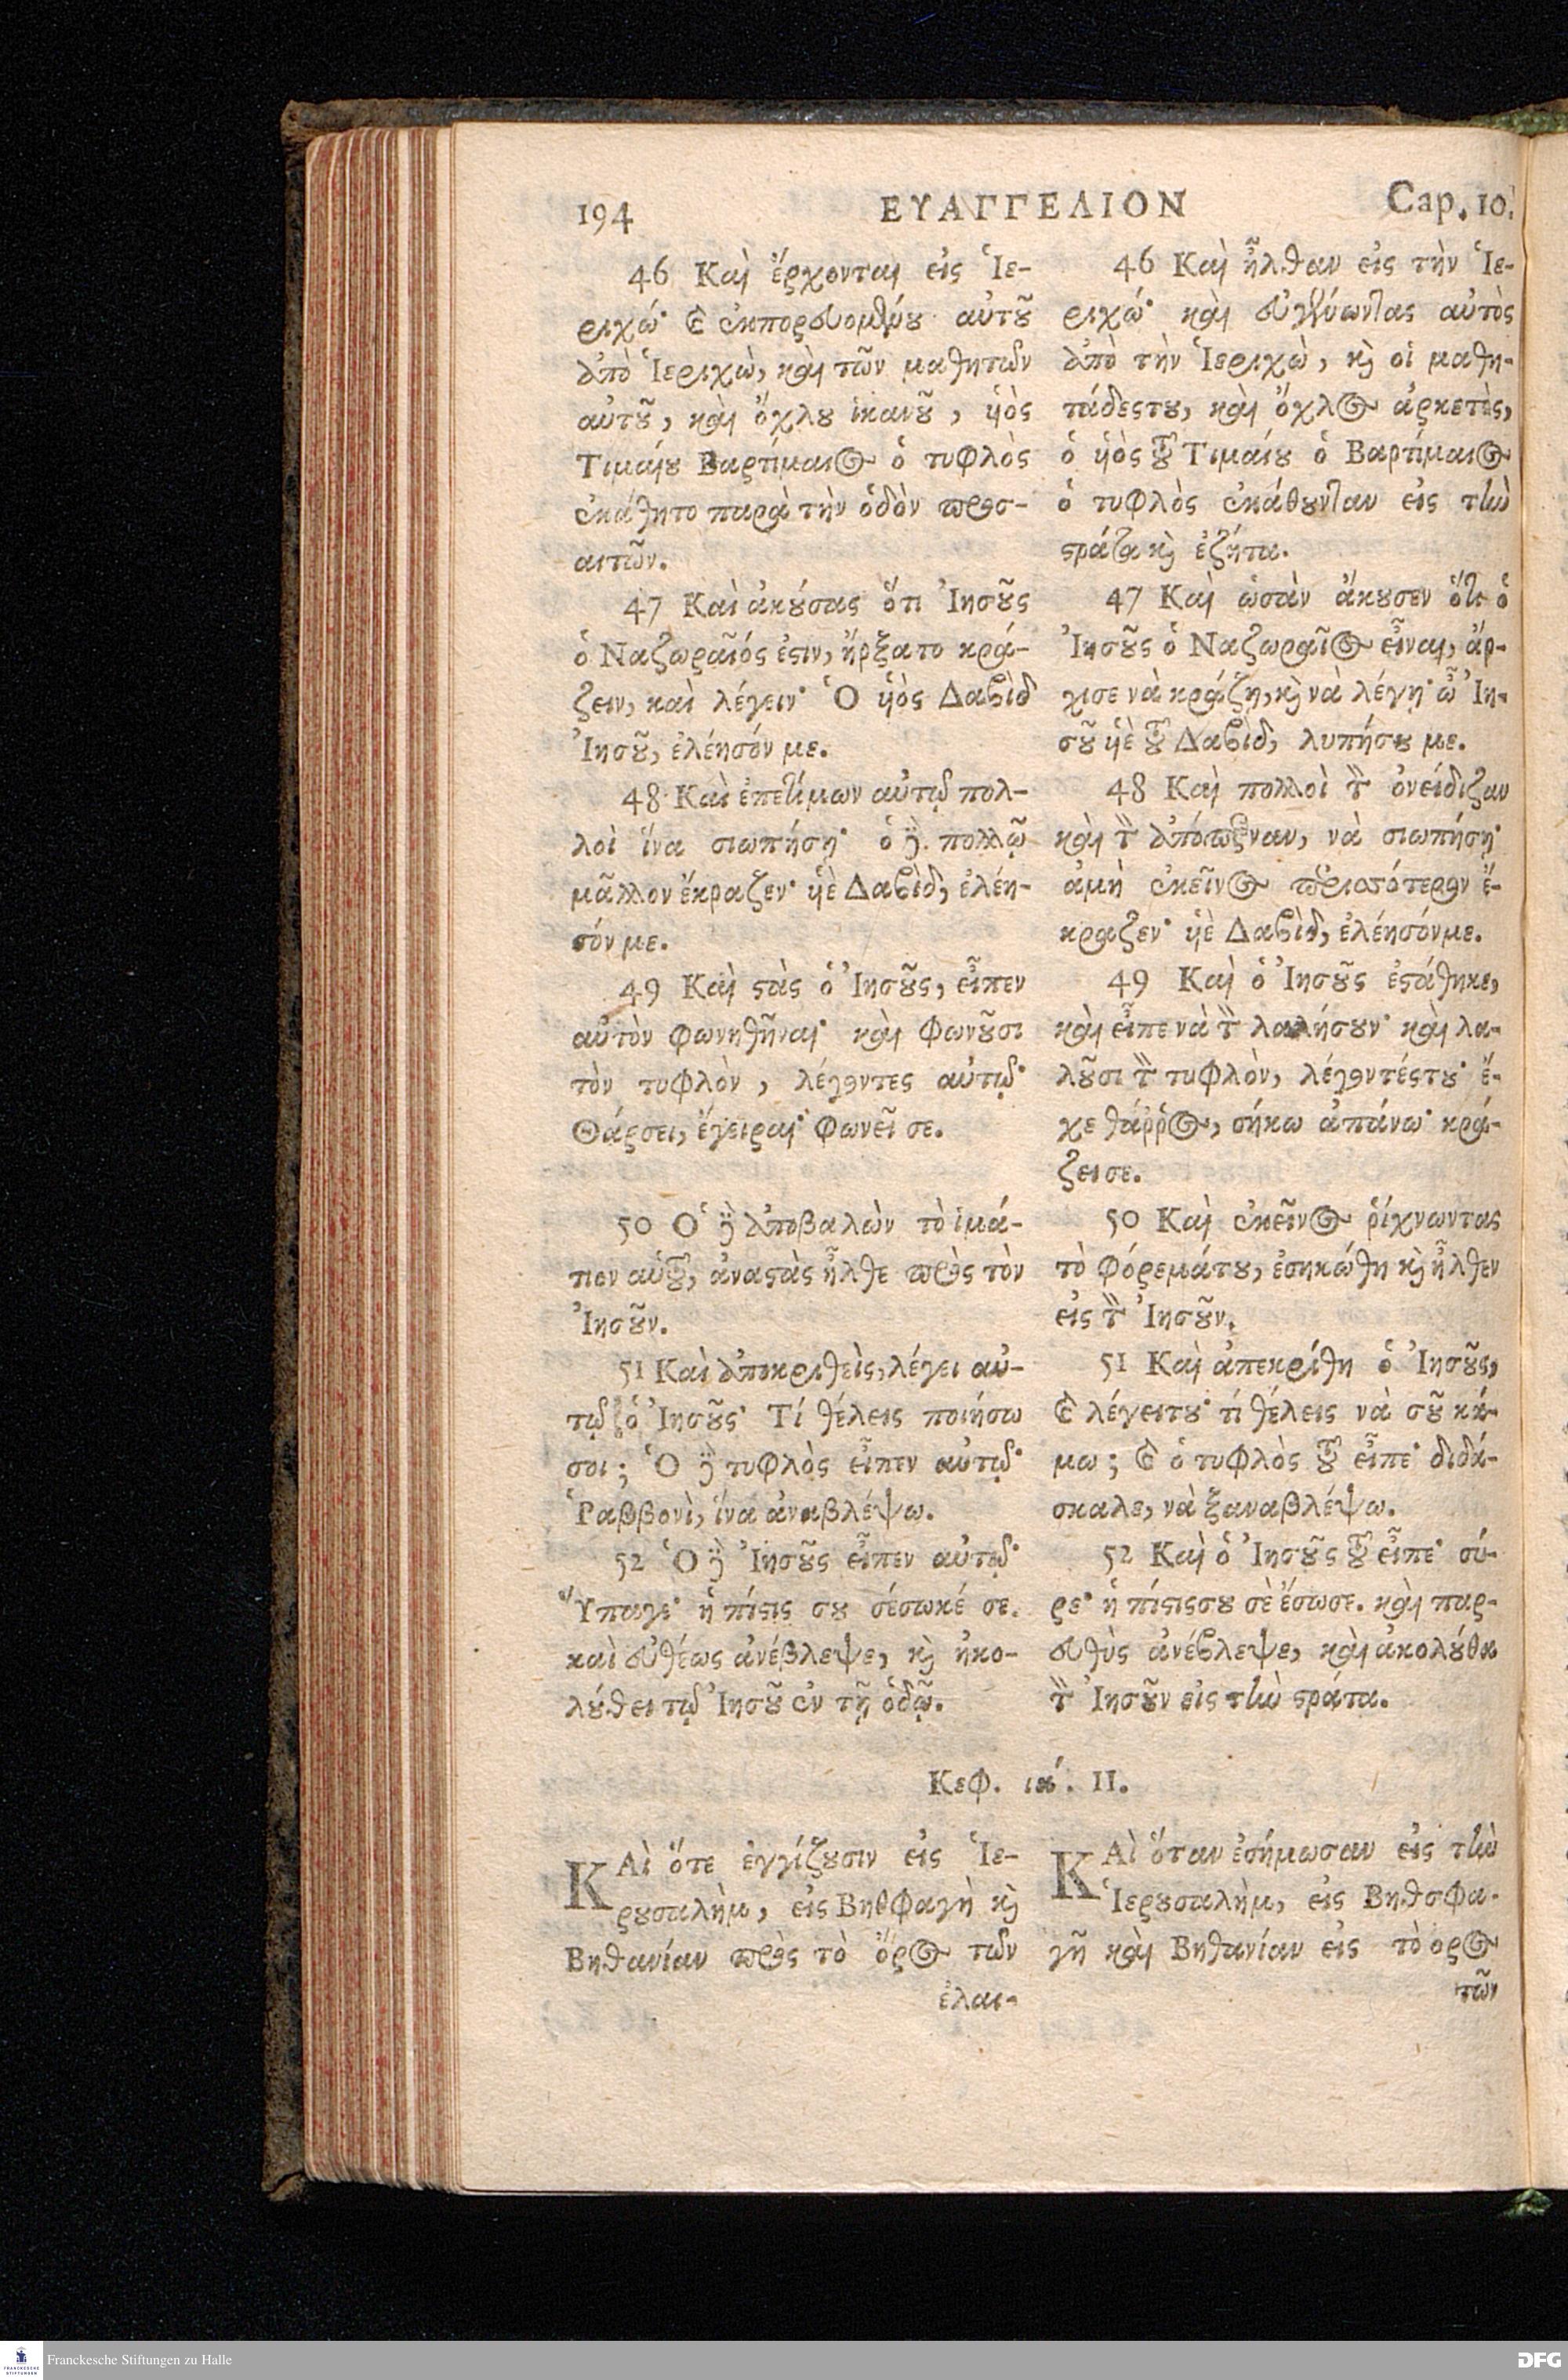 194 ΕΥΑΓΓΕΛΙΟΝ Cap. 10.
46 Καὶ ἔρχονται εἰς Ἱε-
ριχώ· καὶ ἐκπορευομένου αὐτοῦ
ἀπὸ Ἱεριχὼ, καὶ τῶν μαθητῶν
αὐτοῦ, καὶ ὄχλου ἱκανοῦ, υἱὸς
Τιμαίου Βαρτίμαιος ὁ τυφλὸς
ἐκάθητο παρὰ τὴν ὁδὸν προσ-
αιτῶν.
47 Καὶ ἀκούσας ὅτι Ἰησοῦς
ὁ Ναζωραῖός ἐστιν, ἤρξατο κρά-
ζειν, καὶ λέγειν· Ὁ υἱὸς Δαβὶδ
Ἰησοῦ, ἐλέησόν με.
48 Καὶ ἐπετίμων αὐτῷ πολ-
λοὶ ἵνα σιωπήσῃ· ὁ δὲ πολλῷ
μᾶλλον ἔκραζεν· υἱὲ Δαβὶδ, ἐλέη-
σόν με.
49 Καὶ στὰς ὁ Ἰησοῦς, εἶπεν
αὐτὸν φωνηθῆναι· καὶ φωνοῦσι
τὸν τυφλὸν, λέγοντες αὐτῷ·
Θάρσει, ἔγειραι· φωνεῖ σε.
50 Ὁ δὲ ἀποβαλὼν τὸ ἱμά-
τιον αὑτοῦ, ἀναστὰς ἦλθε πρὸς τὸν
Ἰησοῦν.
51 Καὶ ἀποκριθεὶς, λέγει αὐ-
τῷ ὁ Ἰησοῦς· Τί θέλεις ποιήσω
σοι; Ὁ δὲ τυφλὸς εἶπεν αὐτῷ·
Ῥαββονὶ, ἵνα ἀναβλέψω.
52 Ὁ δὲ Ἰησοῦς εἶπεν αὐτῷ·
Ὕπαγε· ἡ πίστις σου σέσωκέ σε.
καὶ εὐθέως ἀνέβλεψε, καὶ ἠκο-
λούθει τῷ Ἰησοῦ ἐν τῇ ὁδῷ.
46 Καὶ ἦλθαν εἰς τὴν Ἱε-
ριχώ· καὶ εὐγαίνωντας αὐτὸς
ἀπὸ τὴν Ἱεριχὼ, καὶ οἱ μαθη-
τάδεςτου, καὶ ὄχλος ἀρκετὸς,
ὁ υἱὸς τοῦ Τιμαίου ὁ Βαρτίμαιος
ὁ τυφλὸς ἐκάθουνταν εἰς τὴν
στράτα καὶ ἐζήτα.
47 Καὶ ὡσὰν ἄκουσεν ὅτι ὁ
Ἰησοῦς ὁ Ναζωραῖος εἶναι, ἄρ-
χισε νὰ κράζῃ, καὶ νὰ λέγῃ· ὦ Ἰη-
σοῦ υἱὲ τοῦ Δαβὶδ, λυπήσου με.
48 Καὶ πολλοὶ τὸν ὀνείδιζαν
καὶ τὸν ἀπόπερναν, νὰ σιωπήσῃ·
ἀμὴ ἐκεῖνος περισσότερον ἔ-
κραζεν· υἱὲ Δαβὶδ, ἐλέησόνμε.
49 Καὶ ὁ Ἰησοῦς ἐστάθηκε,
καὶ εἶπε νὰ τὸν λαλήσουν· καὶ λα-
λοῦσι τὸν τυφλὸν, λέγοντέςτου· ἔ-
χε θάῤῥος, σήκω ἀπάνω· κρά-
ζει σε.
50 Καὶ ἐκεῖνος ῥίχνωντας
τὸ φόρεμάτου, ἐσηκώθη καὶ ἦλθεν
εἰς τὸν Ἰησοῦν.
51 Καὶ ἀπεκρίθη ὁ Ἰησοῦς,
καὶ λέγειτου· τί θέλεις νὰ σοῦ κά-
μω; καὶ ὁ τυφλὸς τοῦ εἶπε· διδά-
σκαλε, νὰ ξαναβλέψω.
52 Καὶ ὁ Ἰησοῦς τοῦ εἶπε· σύ-
ρε· ἡ πίστιςσου σὲ ἔσωσε. καὶ παρ-
ευθὺς ἀνέβλεψε, καὶ ἀκολούθα
τὸν Ἰησοῦν εἰς τὴν στράτα.
Κεφ. ια΄. 11.
ΚΑὶ ὅτε ἐγγίζουσιν εἰς Ἱε-
ρουσαλὴμ, εἰς Βηθφαγὴ καὶ
Βηθανίαν πρὸς τὸ ὄρος τῶν
ἐλαι-
ΚΑὶ ὅταν ἐσήμωσαν εἰς τὴν
Ἱερουσαλὴμ, εἰς Βηθσφα-
γῆ καὶ Βηθανίαν εἰς τὸ ορος
τῶν
Franckesche Stiftungen zu Halle
DFG